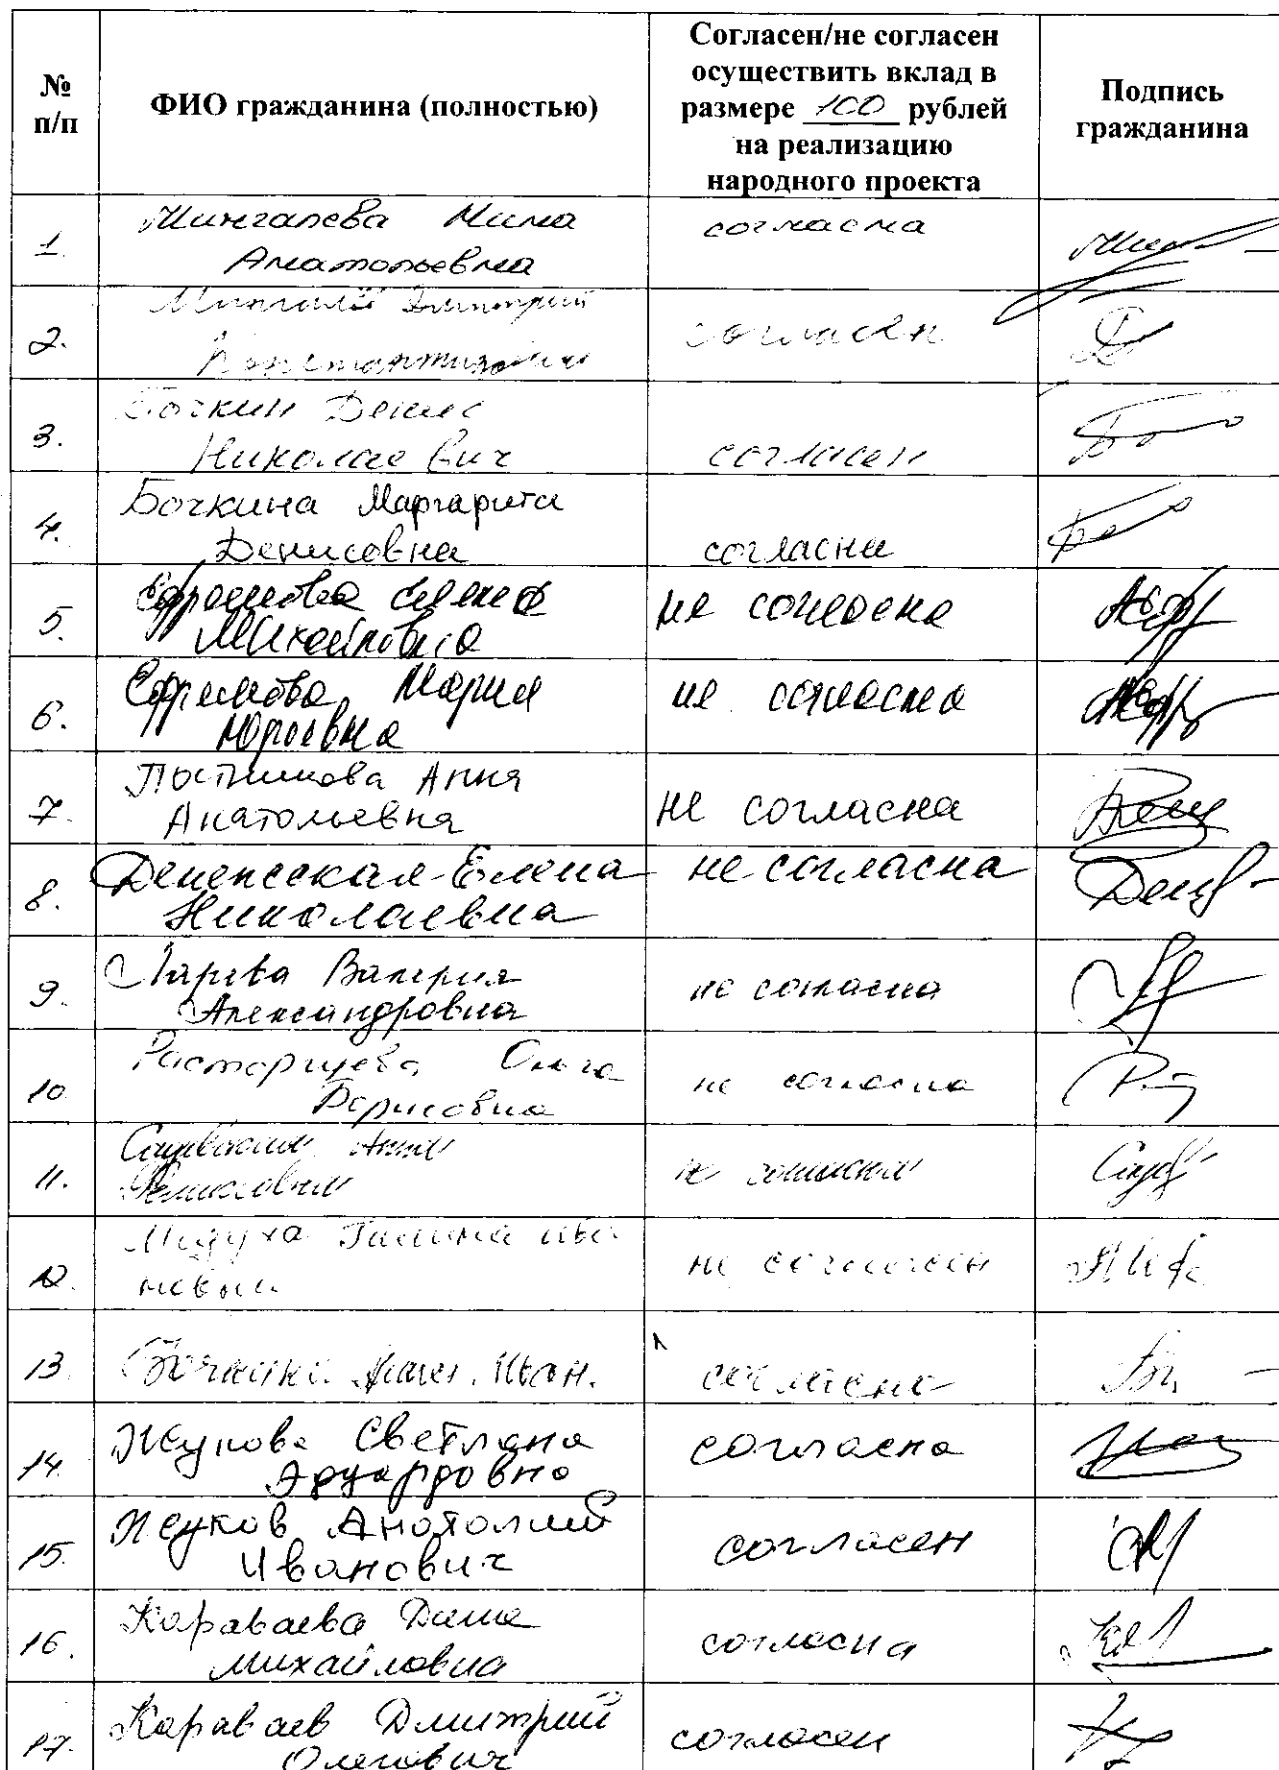 № п/п
ФИО гражданина (полностью)
Согласен/не согласен
осуществить вклад в
размере 100 рублей
на реализацию
народного проекта
Подпись
гражданина
1. Мингалева Нина
Анатольевна
согласна
2. Дмитрий
Константинович
согласен
3. Бочкин Денис
Николаевич
согласен
4. Бочкина Маргарита
Денисовна
согласна
5. Ефремова Елена
Михайловна
не согласна
6. Ефремова Мария
Юрьевна
не согласна
7. Постникова Анна
Анатольевна
не согласна
8. Елена
Николаевна
не согласна
9. Ларева Валерия
Александровна
не согласна
10. Расторгуева Ольга
Борисовна
не согласна
11. Анна
не согласна
12. Галина Ива
новна
не согласен
13. Иван.
согласна
14. Жукова Светлана
Эдуардовна
согласна
15. Жуков Анатолий
Иванович
согласен
16. Караваева Дина
Михайловна
согласна
17. Караваев Дмитрий
Олегович
согласен